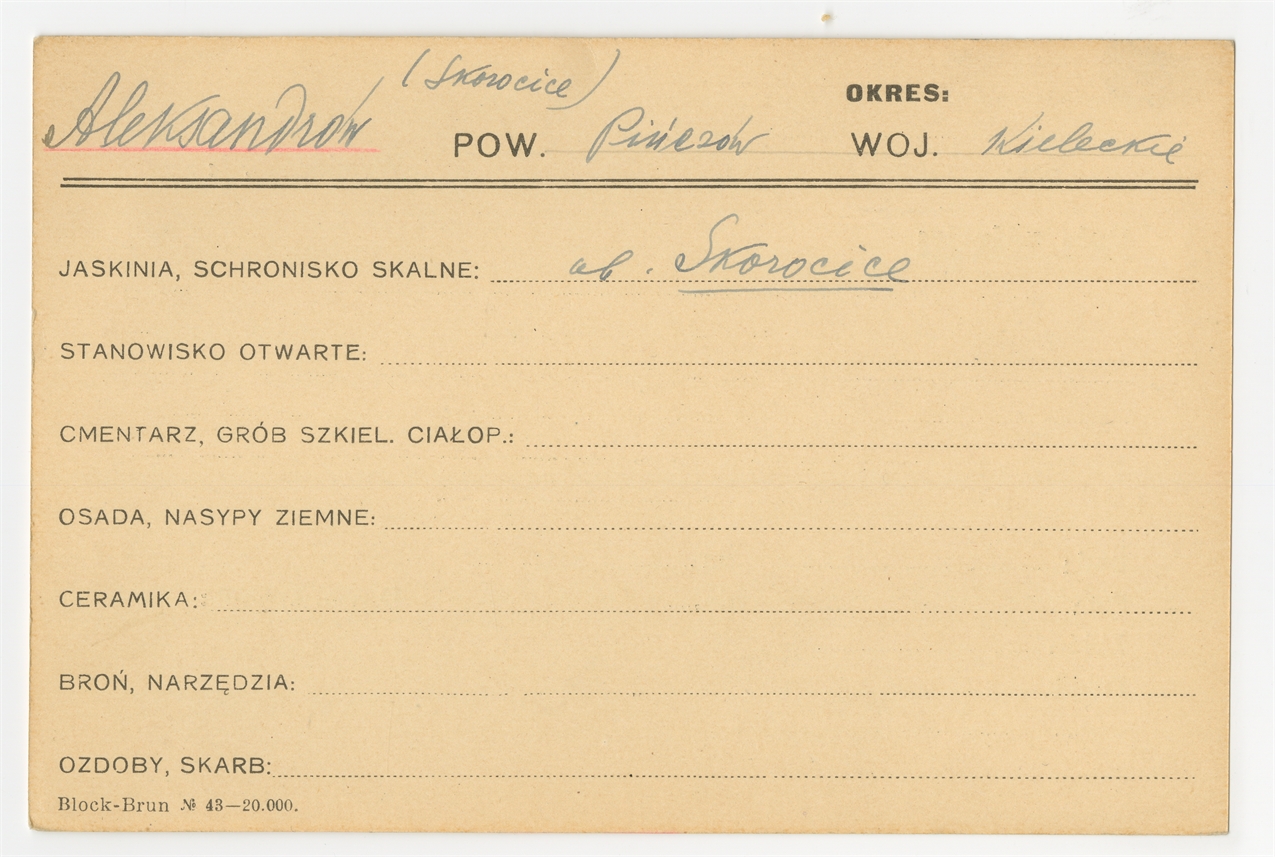 (Skorocice)
OKRES:
Aleksandrów POW. Pińczów WOJ. Kieleckie
JASKINIA, SCHRONISKO SKALNE: ob. Skorocice
STANOWISKO OTWARTE:
CMENTARZ, GRÓB SZKIEL. CIAŁOP.:
OSADA, NASYPY ZIEMNE:
CERAMIKA:
BROŃ, NARZĘDZIA:
OZDOBY, SKARB:
Block-Brun № 43—20.000.